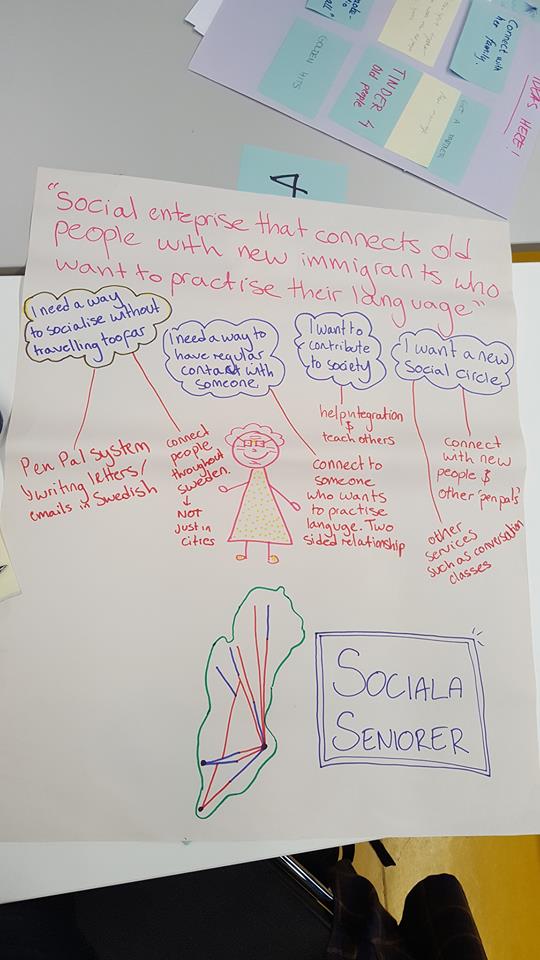 Connect with
her family.
GOLDEN HITS
TINDER 4
Old people
GET A PARTNER
HERE!
4
"Social enteprise that connects old
people with new immigrants who
want to practise their language"
I need a way
to socialise without
travelling too far
I need a way to
have regular
contact with
someone
I want to
contribute
to society
I want a new
Social circle
Pen Pal system
writing letters/
emails in Swedish
connect
people
throughout
Sweden.
NOT
Just in
cities
help integration
&
teach others
connect to
someone
who wants
to practise
languge. Two
sided relationship
connect
with new
people &
other 'pen pals'
other
services
such as conversation
classes
SOCIALA
SENIORER